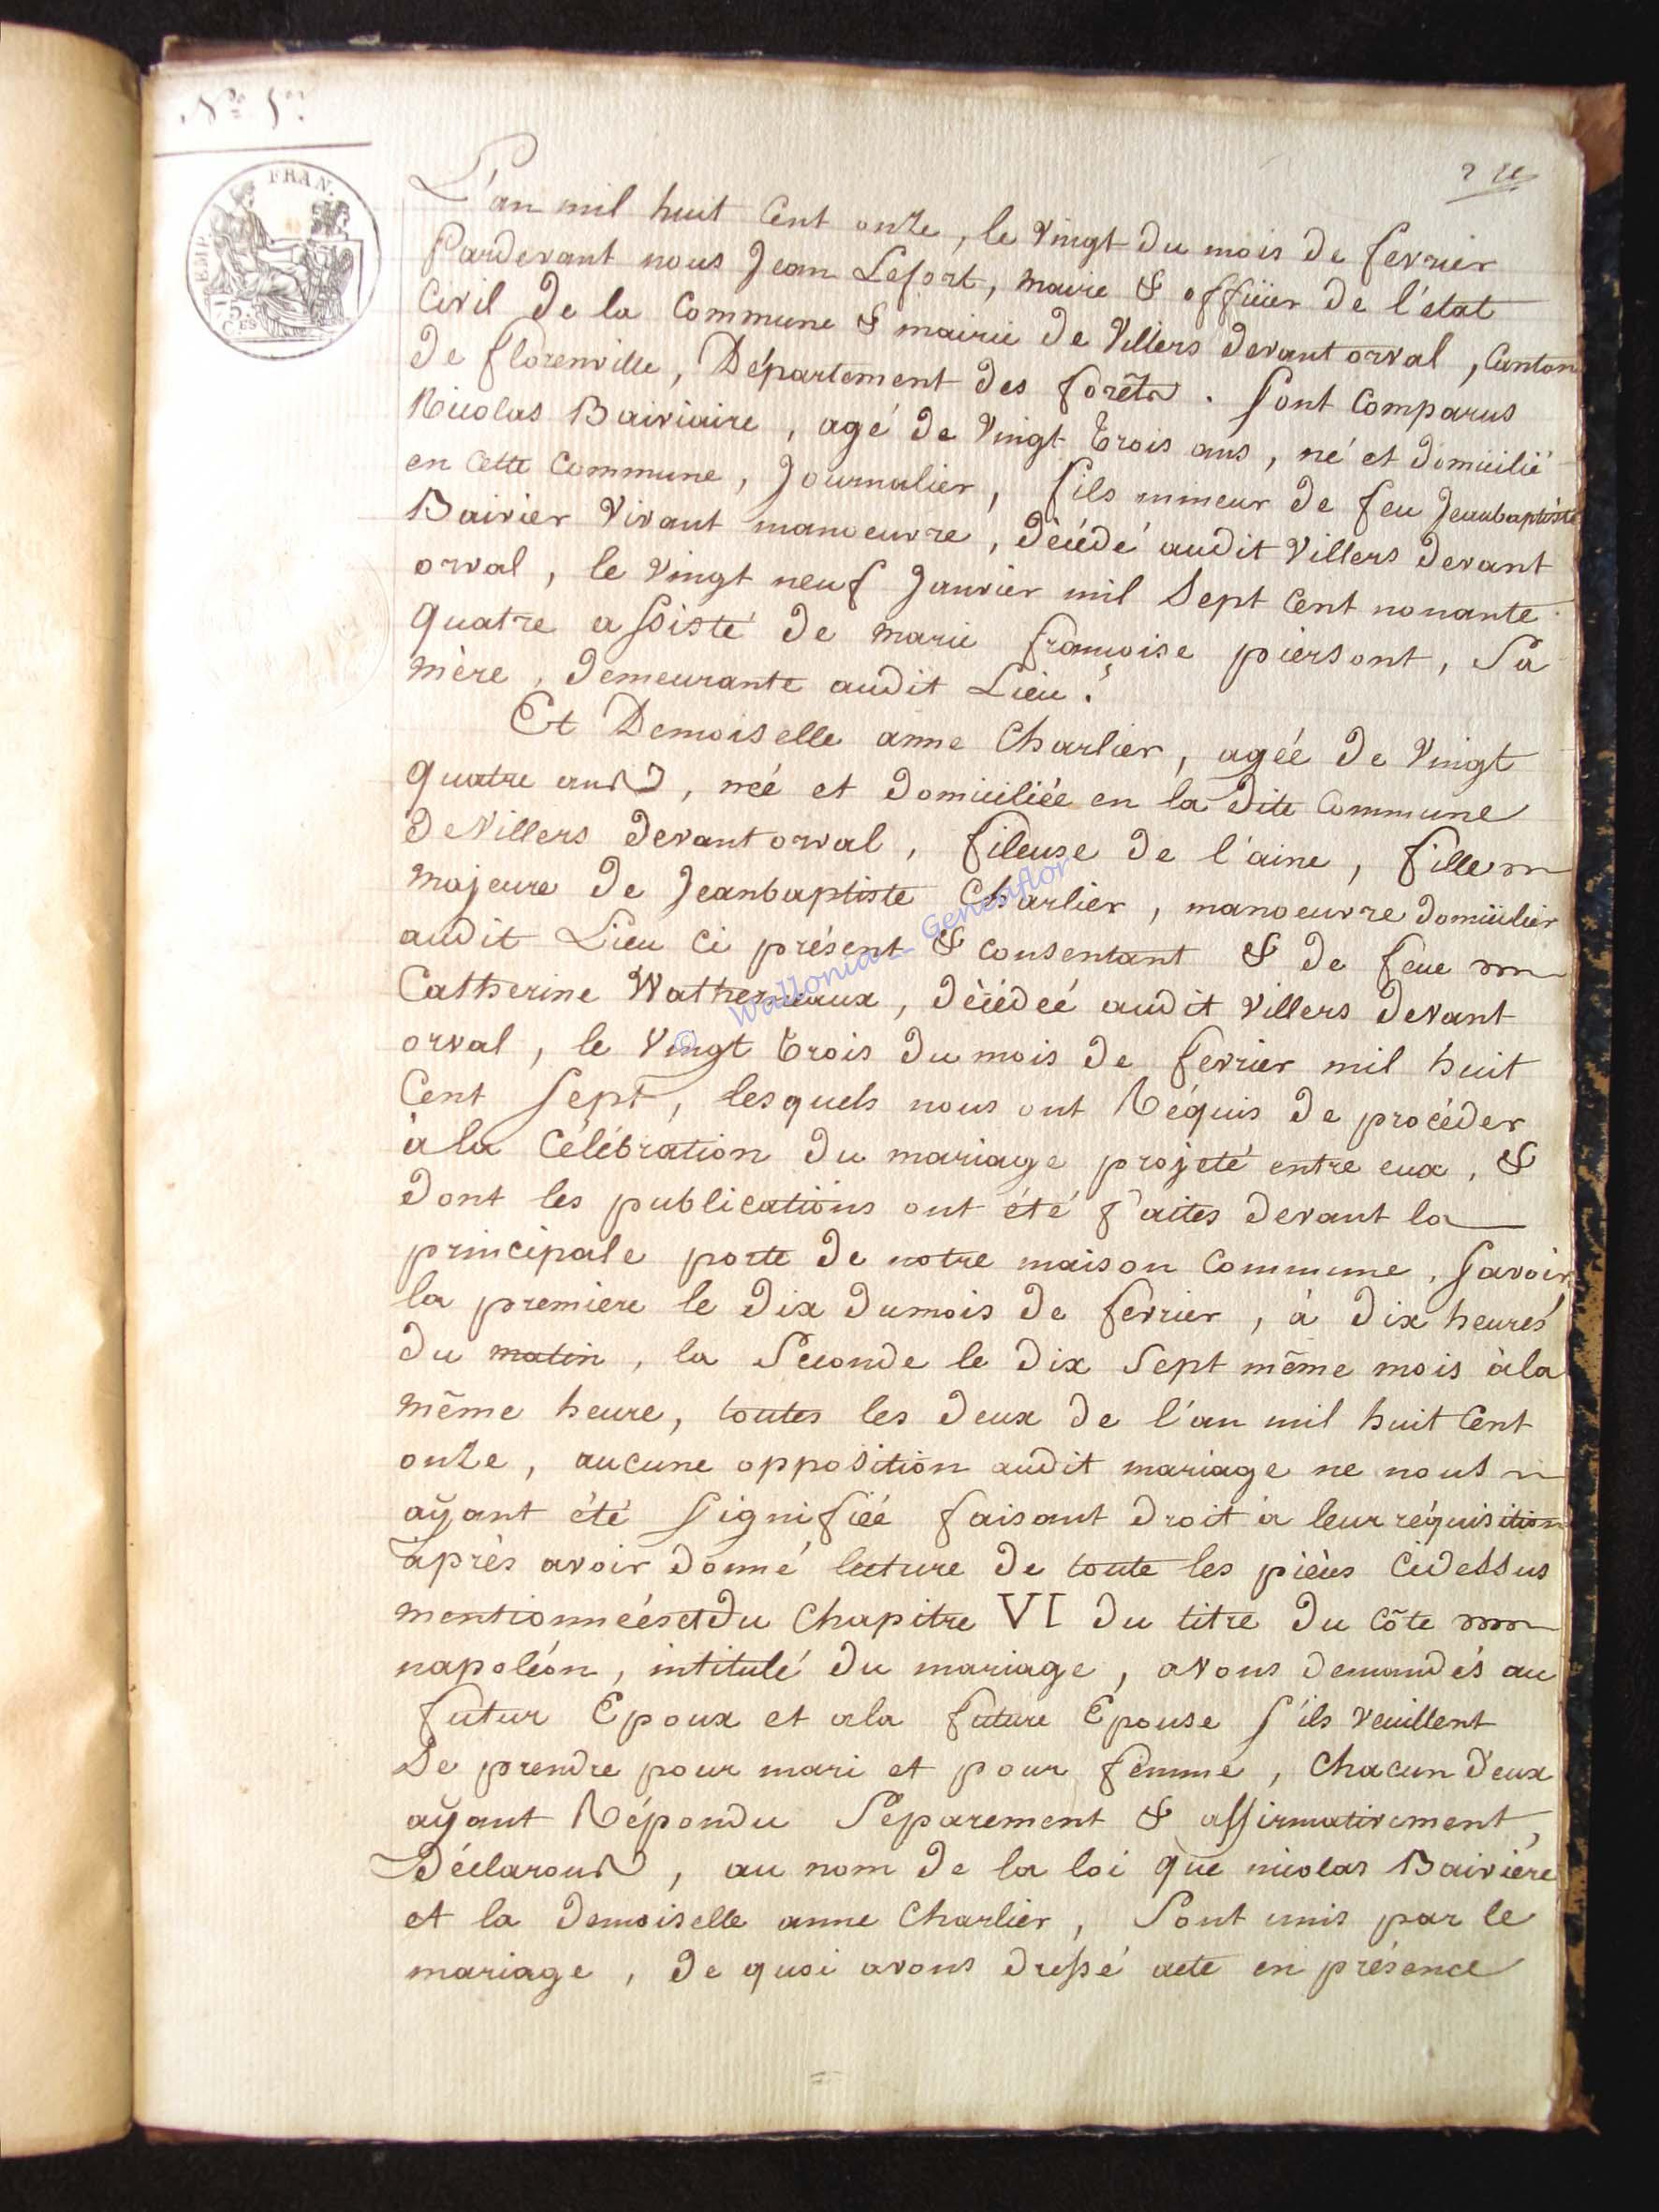 EMP. FRAN.
75.
CES
L'an mil huit Cent onze, le Vingt du mois de fevrier
Pardevant nous Jean Lefort, maire & officier de l'état
Civil de la Commune & mairie de Villers devant orval, Canton
de florenville, Département des forêts. Sont Comparus
Nicolas Bairiaire, agé de Vingt trois ans, né et domicilié
en Cette Commune, Journalier, fils mineur de feu Jeanbaptiste
Bairier Vivant manoeuvre, décédé audit Villers devant
orval, le Vingt neuf Janvier mil Sept Cent nonante
quatre assisté de marie francoise piersont, Sa
mère, demeurante audit Lieu.
Et Demoiselle anne Charlier, ageé de Vingt
quatre ans, neé et domiciliée en la dite Commune
de Villers devant orval, fileuse de l'aine, fille
majeure de Jeanbaptiste Charlier, manoeuvre domicilier
audit Lieu Ci présent & consentant & de feue
Catherine, décédeé audit Villers devant
orval, le Vingt trois du mois de fevrier mil huit
Cent Sept, lesquels nous ont Réquis de procéder
à la Célébration du mariage projeté entre eux, &
dont les publications ont été faites devant la
principale porte de notre maison Commune, Savoir
la premiere le dix du mois de fevrier, à dix heures
du matin, la Seconde le dix Sept même mois à la
même heure, toutes les deux de l'an mil huit Cent
onze, aucune opposition audit mariage ne nous
ayant été Signifiéé faisant droit à leur réquisition
après avoir donné lecture de toute les pièces Cidessus
mentionnéés et du Chapitre VI du titre du Côte
napoléon, intitulé du mariage, avons demandés au
futur Epoux et a la future Epouse S'ils veuillent
Se prendre pour mari et pour femme, Chacun d'eux
ayant Répondu Séparement & affirmativement,
Déclarons, au nom de la loi que nicolas Bairiére
et la demoiselle anne Charlier, Sont unis par le
mariage, de quoi avons dressé acte en présence
© Wallonia - Geneaflor